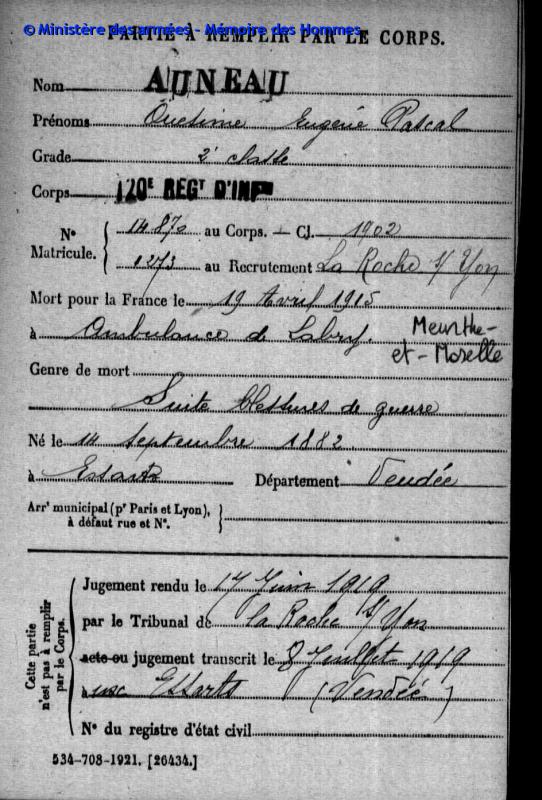 © Ministère des armées - Mémoire des Hommes
PARTIE À REMPLIR PAR LE CORPS.
Nom AUNEAU
Prénoms Onésime Eugène Pascal
Grade 2e classe
Corps 120E REGT D'INFIE
N° Matricule. { 14870 au Corps. — Cl. 1902
1273 au Recrutement La Roche s/ Yon
Mort pour la France le 19 Avril 1915
à Ambulance de Labry. Meurthe-et-Moselle
Genre de mort
Suite blessures de guerre
Né le 14 Septembre 1882
à Essarts Département Vendée
Arrt municipal (pr Paris et Lyon), à défaut rue et N°. }
Cette partie n'est pas à remplir par le Corps. {
Jugement rendu le 17 Juin 1919
par le Tribunal de la Roche s/ Yon
acte ou jugement transcrit le 8 Juillet 1919
à aux Essarts (Vendée)
N° du registre d'état civil
534-708-1921. [26434.]